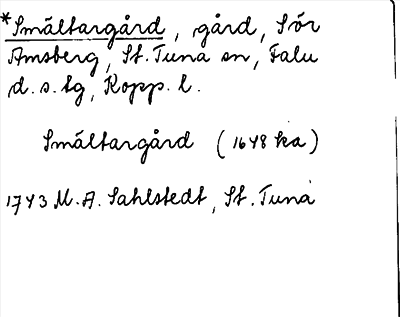 *Smältargård, gård, Sör
Amsberg, St. Tuna sn, Falu
d. s. lg, Kopp. l.
Smältargård (1648 ka)
1743 M. A. Sahlstedt, St. Tuna